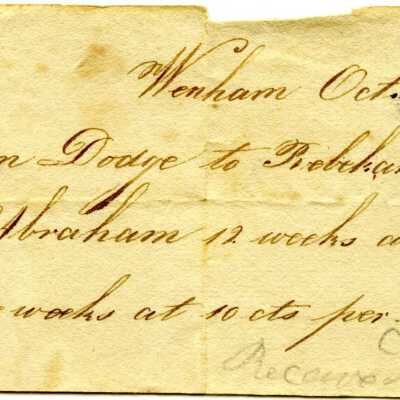 Wenham Oct.
n Dodge to Rebekah
Abraham 12 weeks a
weeks at 10 cts per
Receive